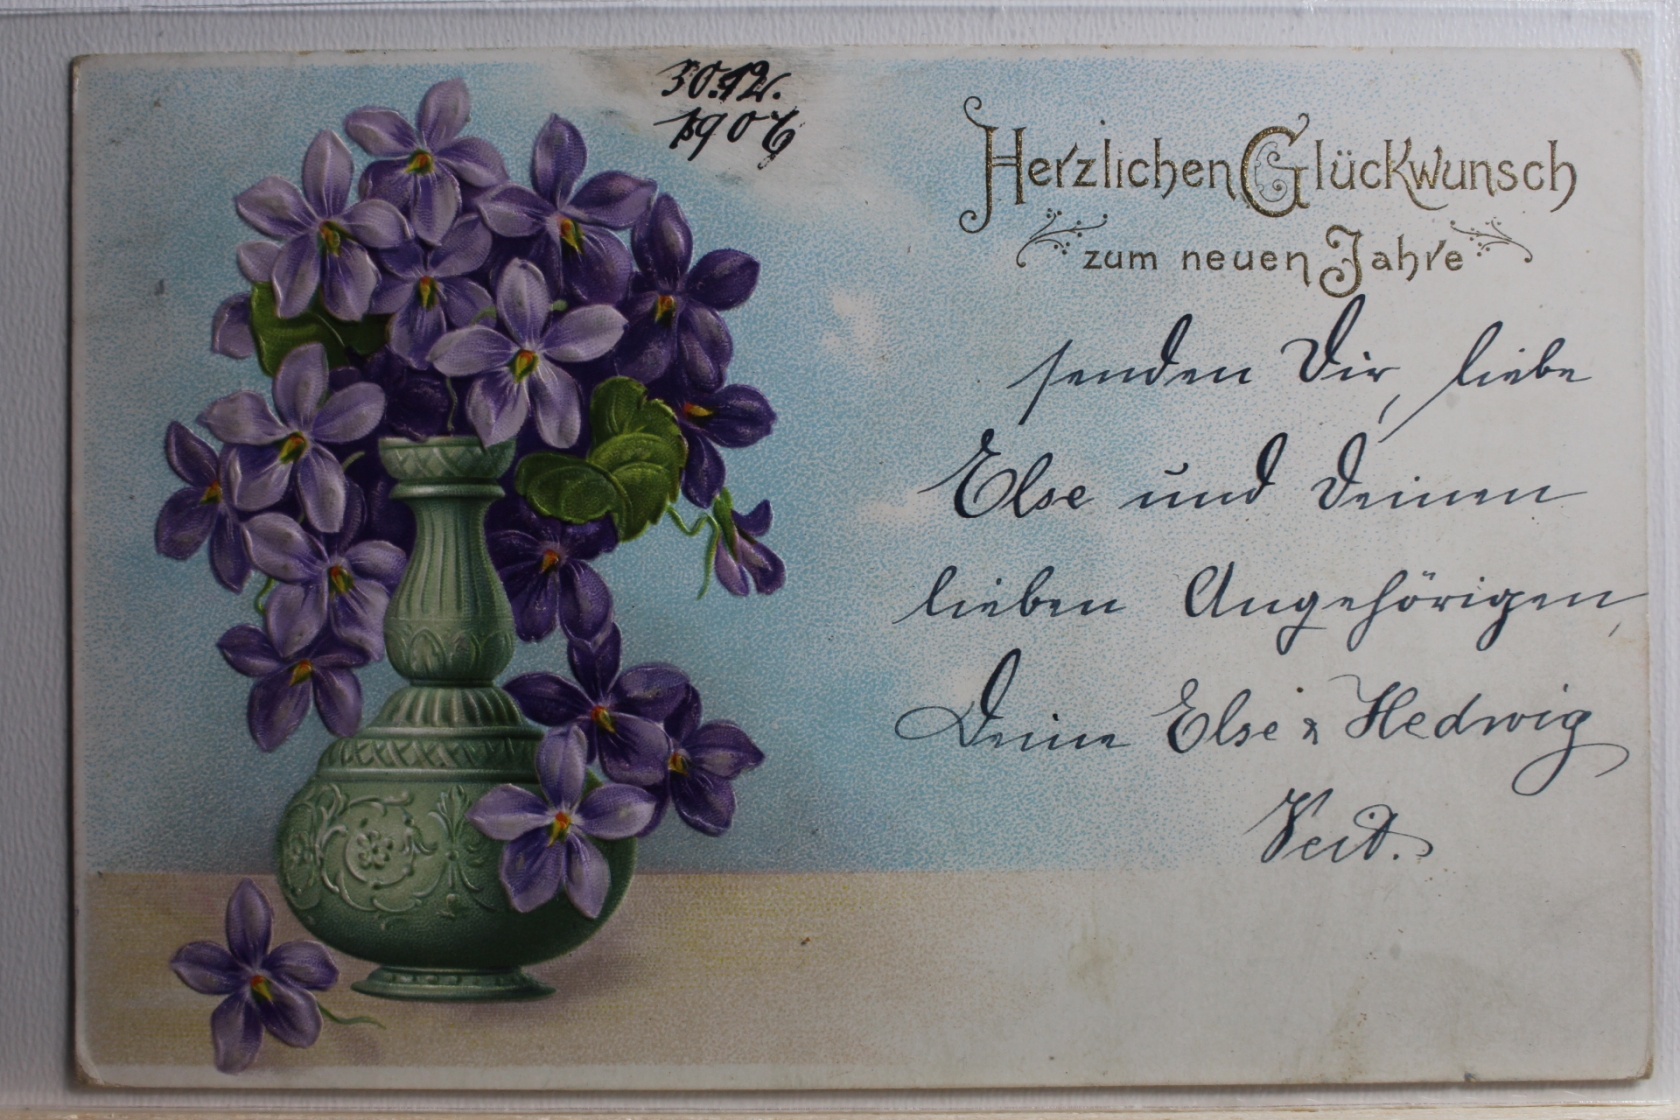 30.12.
1906
Herzlichen Glückwunsch
zum neuen Jahre
senden Dir, liebe
Else und Deinen
lieben Angehörigen,
Deine Else & Hedwig
Veit.